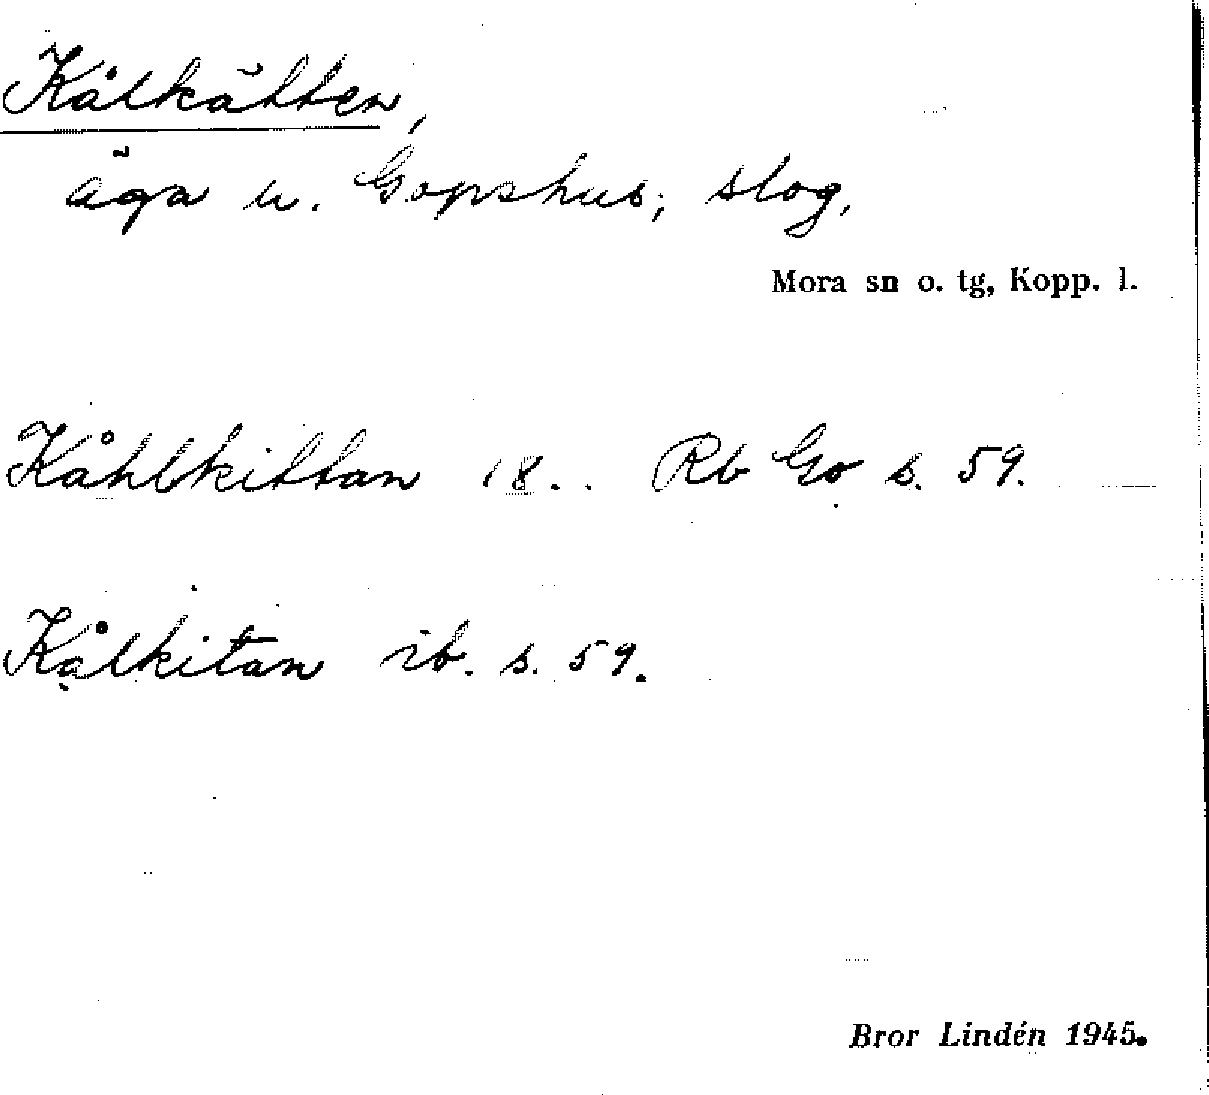 Kålkätten,
äga u. Gopshus; slog,
Mora sn o. tg, Kopp. l.
Kåhlkittan 18.. Rb Go s. 59.
Kålkitan ib. s. 59.
Bror Lindén 1945.